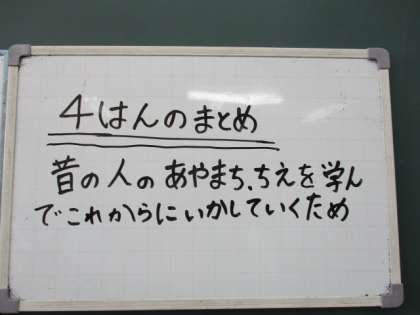 4はんのまとめ
昔の人のあやまち、ちえを学ん
でこれからにいかしていくため